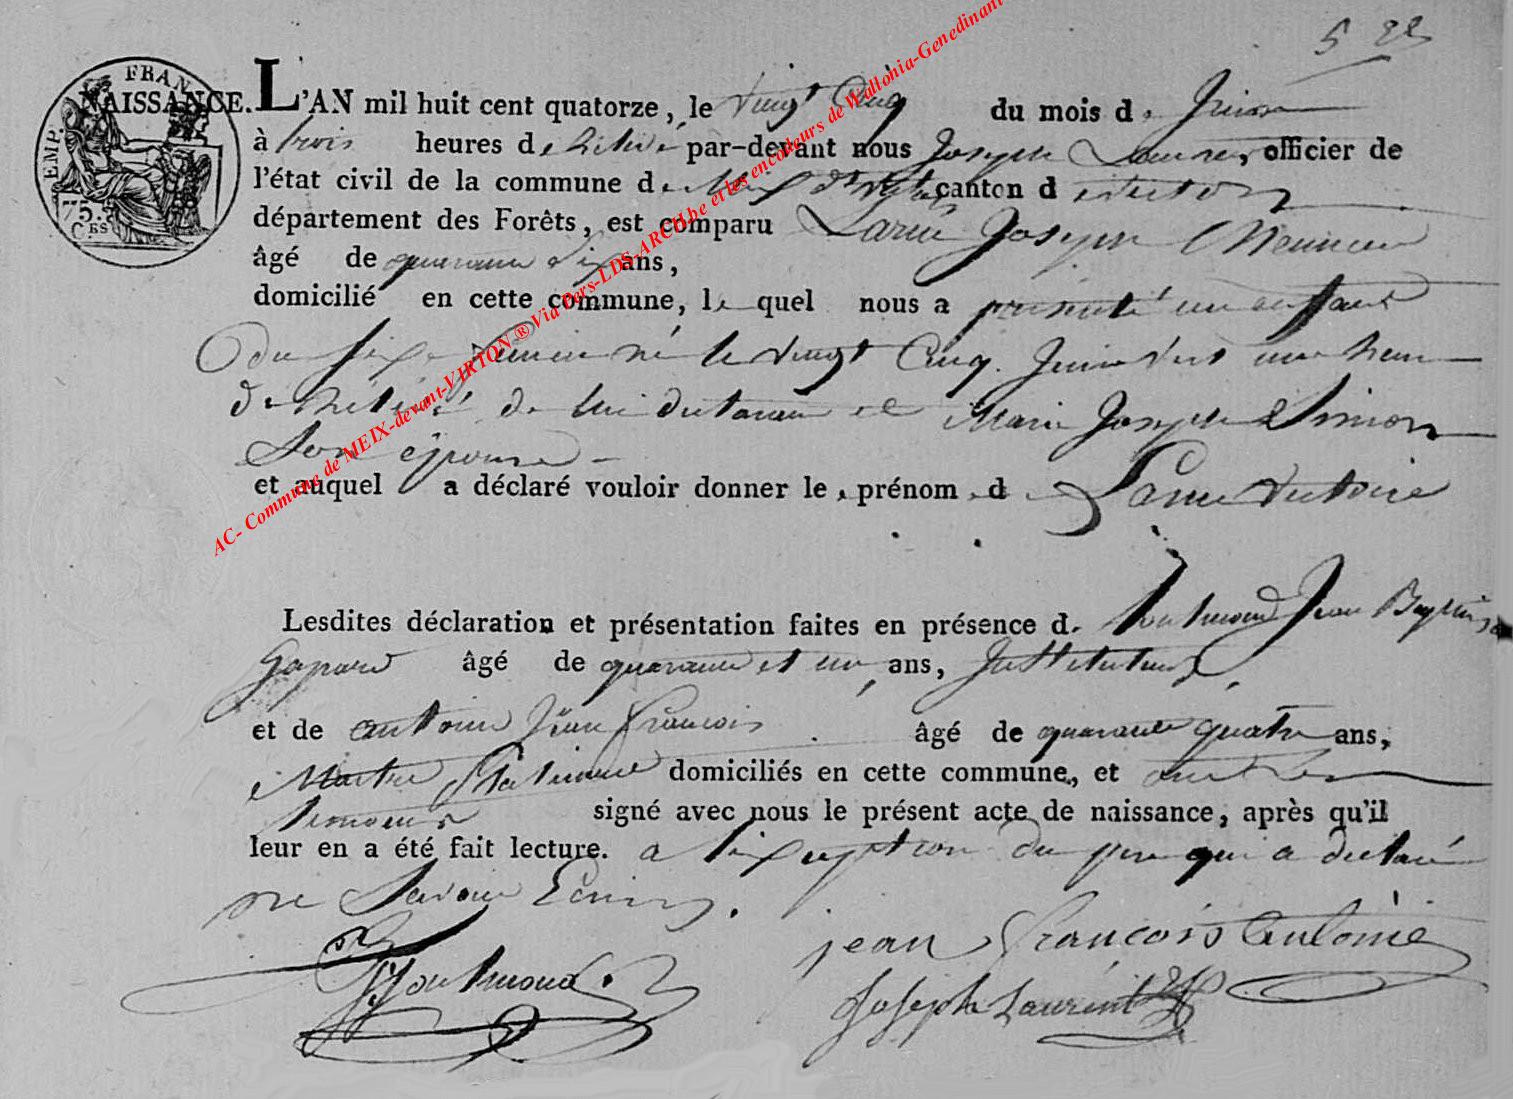 5
FRAN
EMP.
75.
C.ES
NAISSANCE. L'AN mil huit cent quatorze, le vingt Cinq du mois de Juin
à trois heures de relevé par-devant nous Joseph Laurent, officier de
l'état civil de la commune de Meix dt virton canton de virton
département des Forêts, est comparu Larue Joseph
âgé de quarante six ans,
domicilié en cette commune, le quel nous a présenté un enfant
du sexe feminin né le vingt Cinq Juin vers une heure
de relevé de lui declarant et Marie Joseph Simon
Son épouse
et auquel a déclaré vouloir donner le prénom de Larue victoire
Lesdites déclaration et présentation faites en présence de Jean Baptiste
âgé de quarante et un ans, Instituteur
et de antoine Jean francois âgé de quarante quatre ans,
domiciliés en cette commune, et ont les
temoins signé avec nous le présent acte de naissance, après qu'il
leur en a été fait lecture. a l'exeption du pere qui a declaré
ne Savoir Ecrire.
jean François Antoine
Joseph Laurent
AC- Commune de MEIX-devant-VIRTON® Via Pers-LDS-ARCH.be et les encodeurs de Wallonia-Genedinant